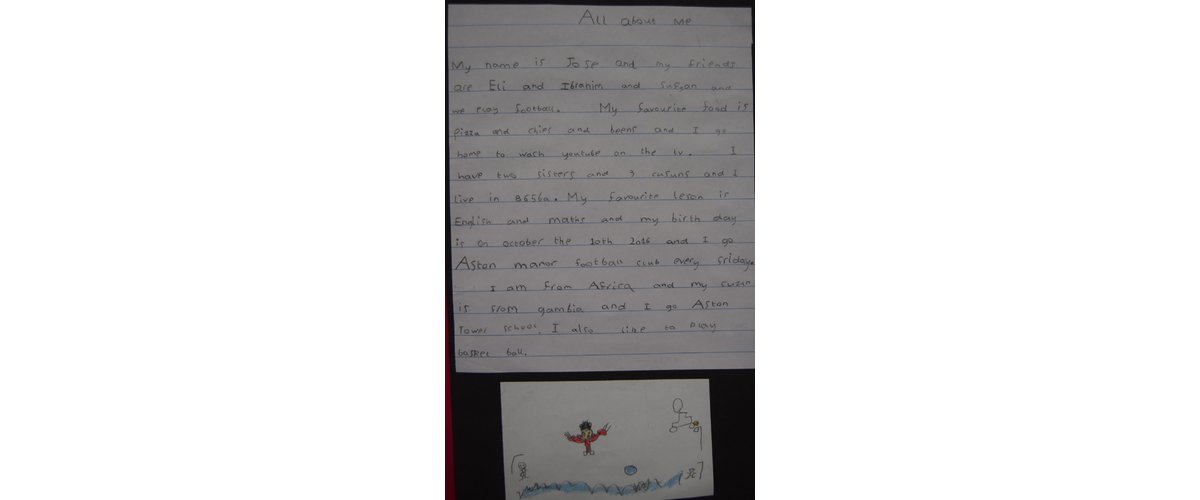 All about me
My name is Jose and my friends
are Eli and Ibrahim and Sufyan and
we Play football. My favourite food is
Pizza and chies and beens and I go
home to wach youtube on the tv. I
have two sisters and 3 cusuns and I
live in B656a. My favourite leson is
English and maths and my birth day
is on october the 10th 2016 and I go
Aston manor football club every friday.
I am from Africa and my cuzen
is from gambia and I go Aston
Tower school. I also like to Play
basket ball.